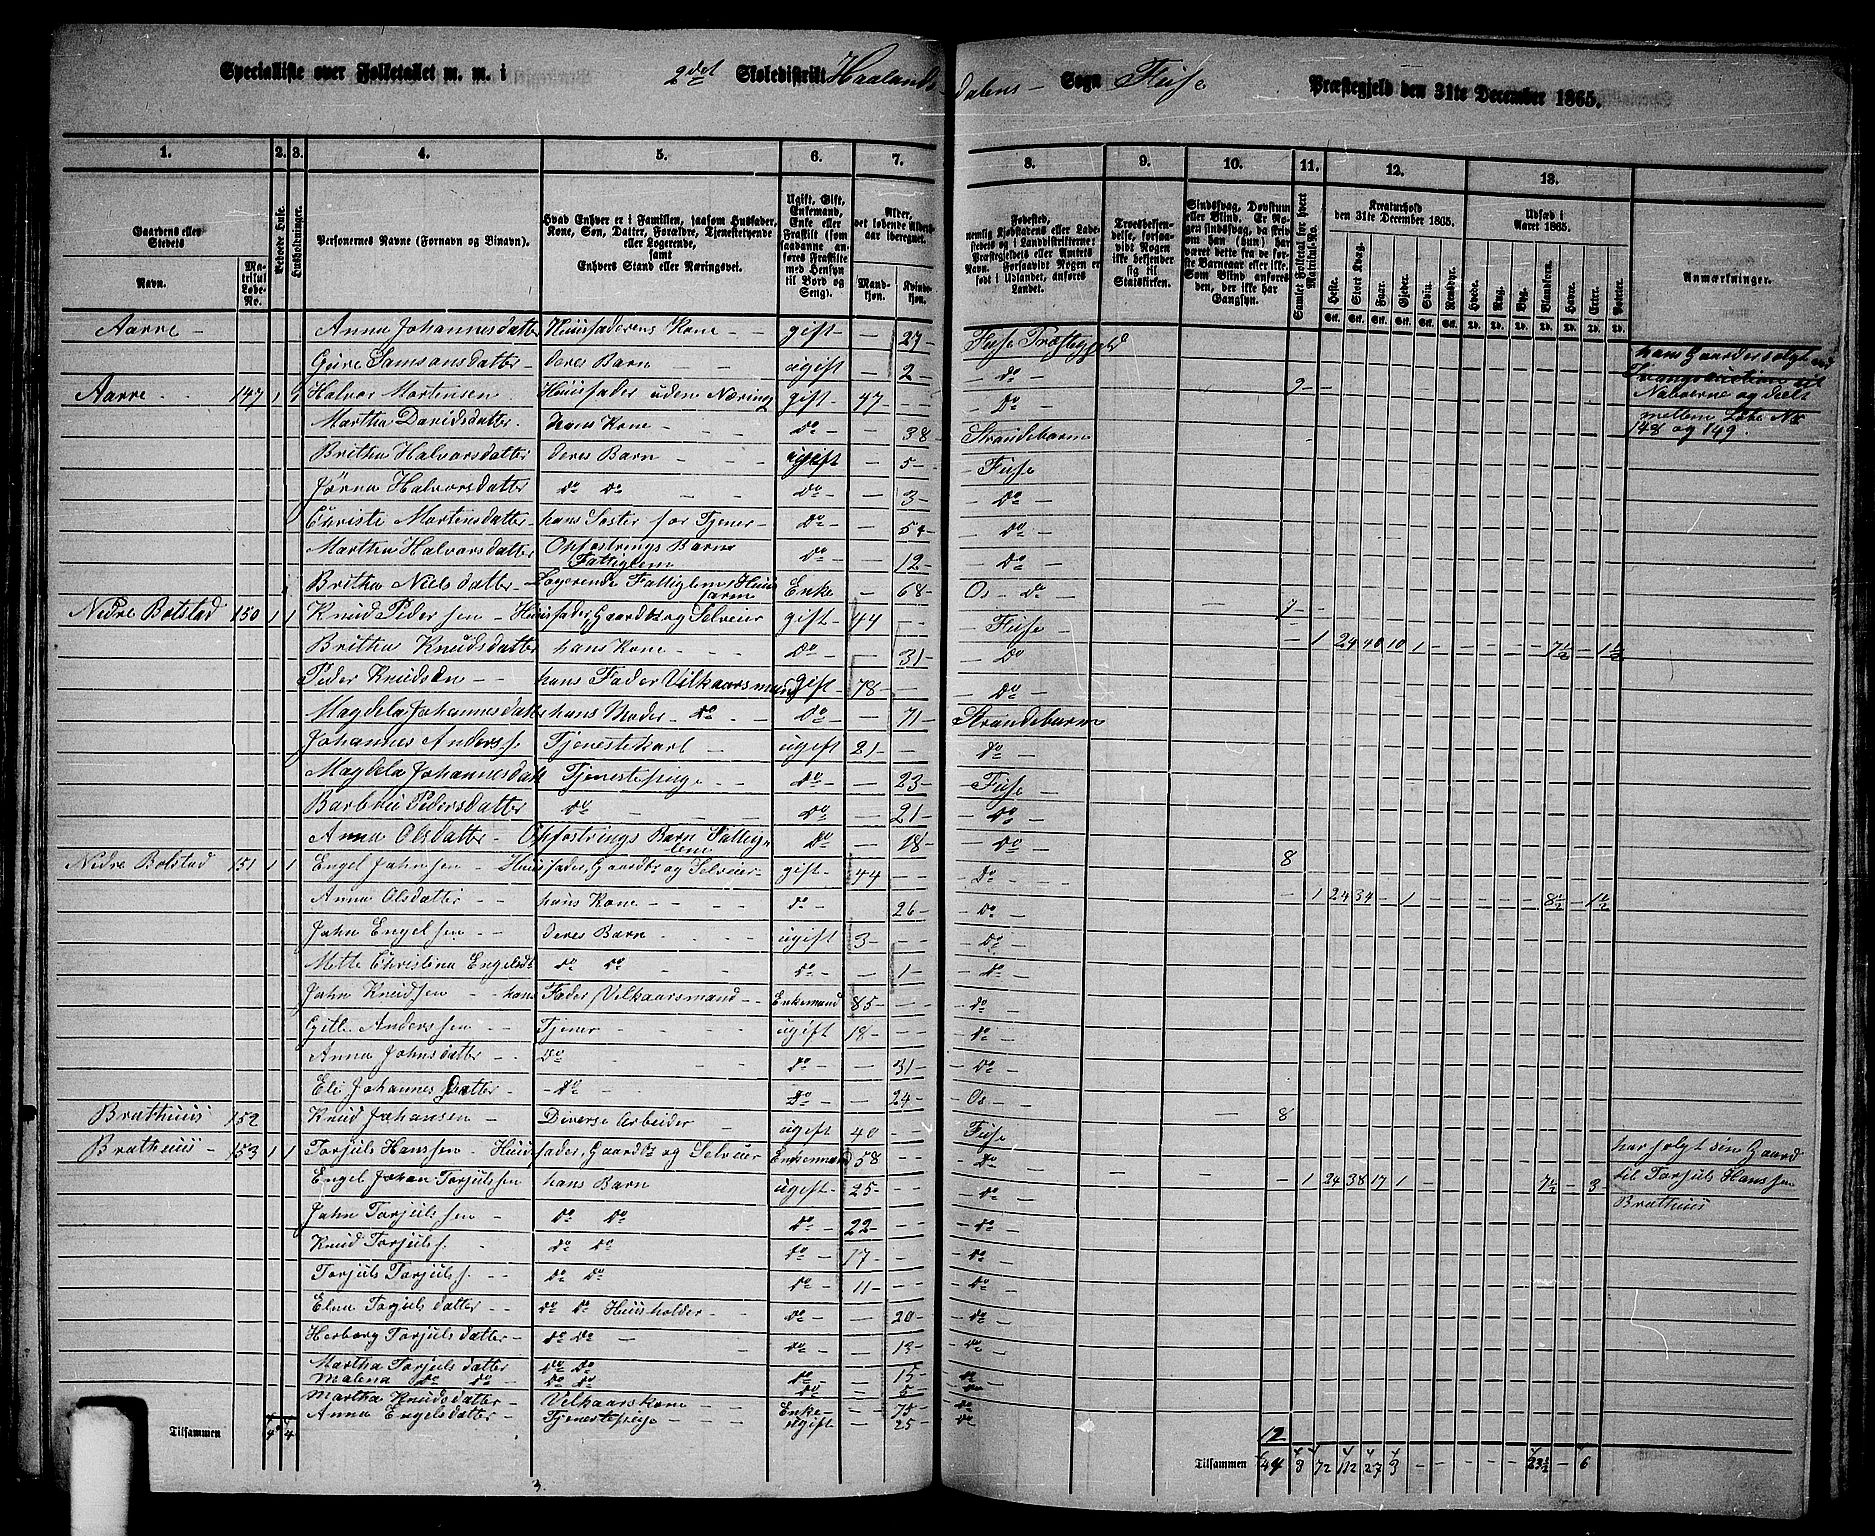 Specialliste over Folketallet m. m. i 2det Skoledistrikt Haalandsdalens Sogn Fuse Præstegjeld den 31te December 1865.
1. 2. 3. 4. 5. 6. 7. 8. 9. 10. 11. 12. 13.
Gaardens eller Stedets
Navn. Matrikul Løbe-No.
Beboede Huse.
Husholdninger.
Personernes Navne (Fornavn og Tilnavn).
Hvad Enhver er i Familien, saasom Husfader, Kone, Søn, Datter, Forældre, Tjenestetyende eller Logerende, samt Enhvers Stand eller Næringsvei.
Ugift, Gift, Enkemand, Enke eller Fraskilt
Alder, det løbende Alders-aar iberegnet.
Mandkjøn. Kvindekjøn.
Fødested,
Troesbekjendelse, forsaavidt Nogen ikke bekjender sig til Statskirken.
Samlet Folketal for hvert Matrikul-No.
Kreaturhold den 31te December 1865.
Heste. Stort Kvæg. Faar. Gjeder. Sviin. Rensdyr.
Udsæd i Aaret 1865.
Hvede. Rug. Byg. Blandkorn. Havre. Erter. Poteter.
Anmærkninger.
Aarre - Anna Johannesdatter Huusfaderens Kone - gift - 27 - Fuse Præstegjeld
Guro Samsonsdatter deres Barn ugift - 2 - do - hans Gaard er solgt ved
Aarre 147 1 9 Halvor Mortensen Huusfader uden Næring gift - 47 - Do - 9 Tvangsauction til Naboerne og deelt
Martha Davidsdatter hans Kone - do - 38 - Strandebarm mellem Løbe No 148 og 149.
Britha Halvorsdatter deres Barn - ugift - 5 - Fuse
Jørna Halvorsdatter do do - do - 3 - do -
Christe Mortensdatter hans Søster for Tjener - do - 54 - do -
Martha Halvorsdatter Opfostrings Barn Fattiglem do - 12 - do -
Britha Nielsdatter Logerende Fattiglem Huusarme Enke - 68 - Os - do -
Nedre Bolstad 150 1 1 Knud Pedersen - Huusfader, Gaardbr og Selveier gift - 44 - Fuse - 7
Britha Knudsdatter hans Kone - do - 31 - Do - 1 24 40 10 1 - 7½ - 1½
Peder Knudsen - hans Fader Vilkaarsmand gift - 78 - do -
Magdela Johannesdatter hans Moder - do - do - 71 - Strandebarm
Johannes Anderss. Tjenestekarl - ugift - 21 - do -
Magdela Johannesdatt Tjenestepige - do - 23 - Fuse -
Barbrü Pedersdatter do - do - 21 - do -
Anna Olsdatter - Opfostrings Barn Fattiglem do - 18 - do -
Nedre Bolstad 151 1 1 Engel Johnsen - Huusfader, Gaardbr og Selveier - gift - 44 - do - 8
Anna Olsdatter hans Kone - do - 26 - do - 1 24 34 - 1 - 8½ - 1½
John Engelsen - deres Barn - ugift - 3 - do -
Mette Christina Engelsdt do do - do - 1 - do -
John Knudsen - hans Fader Vilkaarsmand - Enkemand - 85 - do -
Gitle Anderssen - Tjener - ugift - 18 - do -
Anna Johnsdatter - do - do - 31 - do -
Eli Johannes Datter - do - do - 24 - Os -
Brathuus 152 Knud Johansen - Diverse Arbeider - ugift - 40 - Fuse - 8
Brathuus - 153 1 1 Torjuls Hanssen - Huusfader, Gaardbr og Selveier Enkemand 58 - do - har solgt sin Gaard
Engel Johan Torjulssen hans Barn ugift - 25 - do - 1 24 38 17 1 - 7½ - 3 - til Torjuls Hanssen
John Torjulssen do do - do - 22 - do - Brathuus
Knud Torjulss. - do do - do - 17 - do -
Torjuls Torjulss. - do do do - 11 - do -
Elna Torjulsdatter - do do Huusholder - do - 20 - do -
Herborg Torjulsdatter - do do - do - 13 - do -
Martha Torjulsdatter do do do - 15 - do
Malena do do - do do do - 5 - do
Martha Knudsdatter Vilkaarskone Enke - 75 - do
Anna Engelsdatter - Tjenestepige - ugift - 25 - do
12
Tilsammen 4 4 Tilsammen 44 8 72 112 27 3 - 23½ - 6
3.